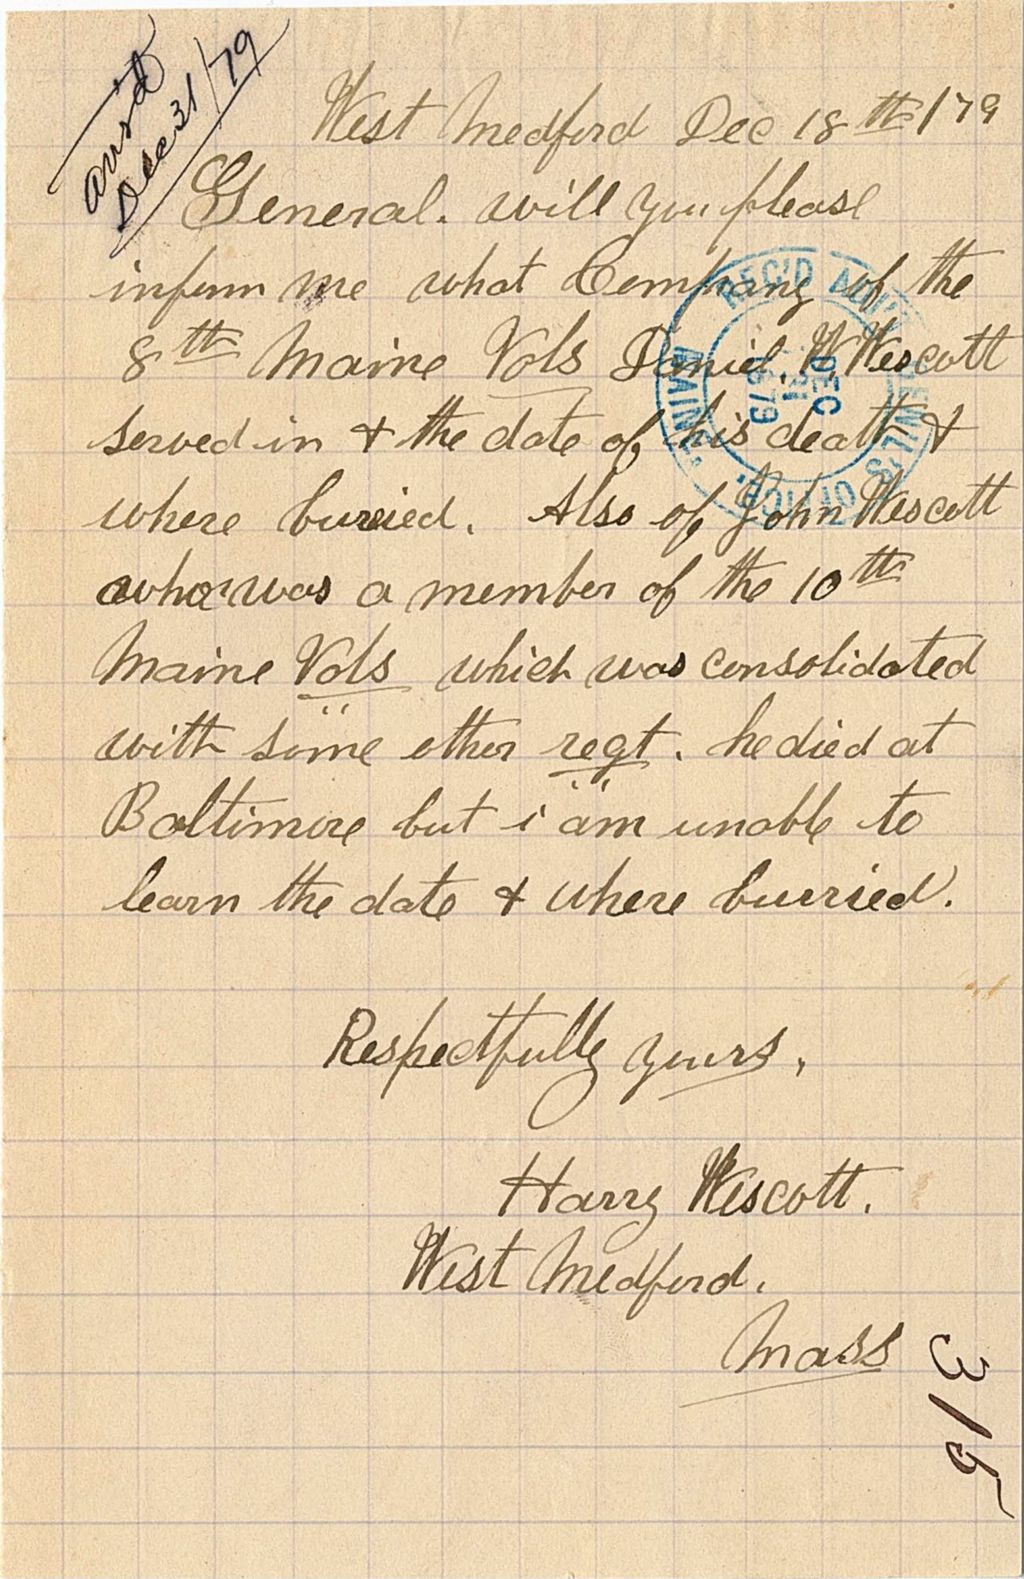 ans'd
Dec 31/79
West Medford Dec 18th/79
General. will you please
inform me what Company of the
8th Maine Vols Daniel. W. Wescott
served in & the date of his death &
where buried. Also of John Wescott
who was a member of the 10th
Maine Vols which was consolidated
with some other regt. he died at
Baltimore but i am unable to
learn the date & where burried.
Respectfully yours,
Harry Wescott.
West Medford.
Mass
315
REC'D ADJ'T GEN'L'S OFFICE, MAINE
DEC
1879